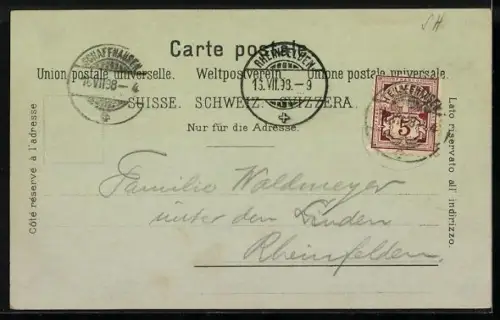 SH
Carte postale.
Union postale universelle. Weltpostverein. Unione postale universale.
SUISSE. SCHWEIZ. SVIZZERA.
Nur für die Adresse.
Côté réservé à l'adresse
Lato riservato all' indirizzo.
SCHAFFHAUSEN
VII 98 - 4
RHEINFELDEN
13.VII.98.-9
5
Familie Waldmeyer
unter den Linden
Rheinfelden.